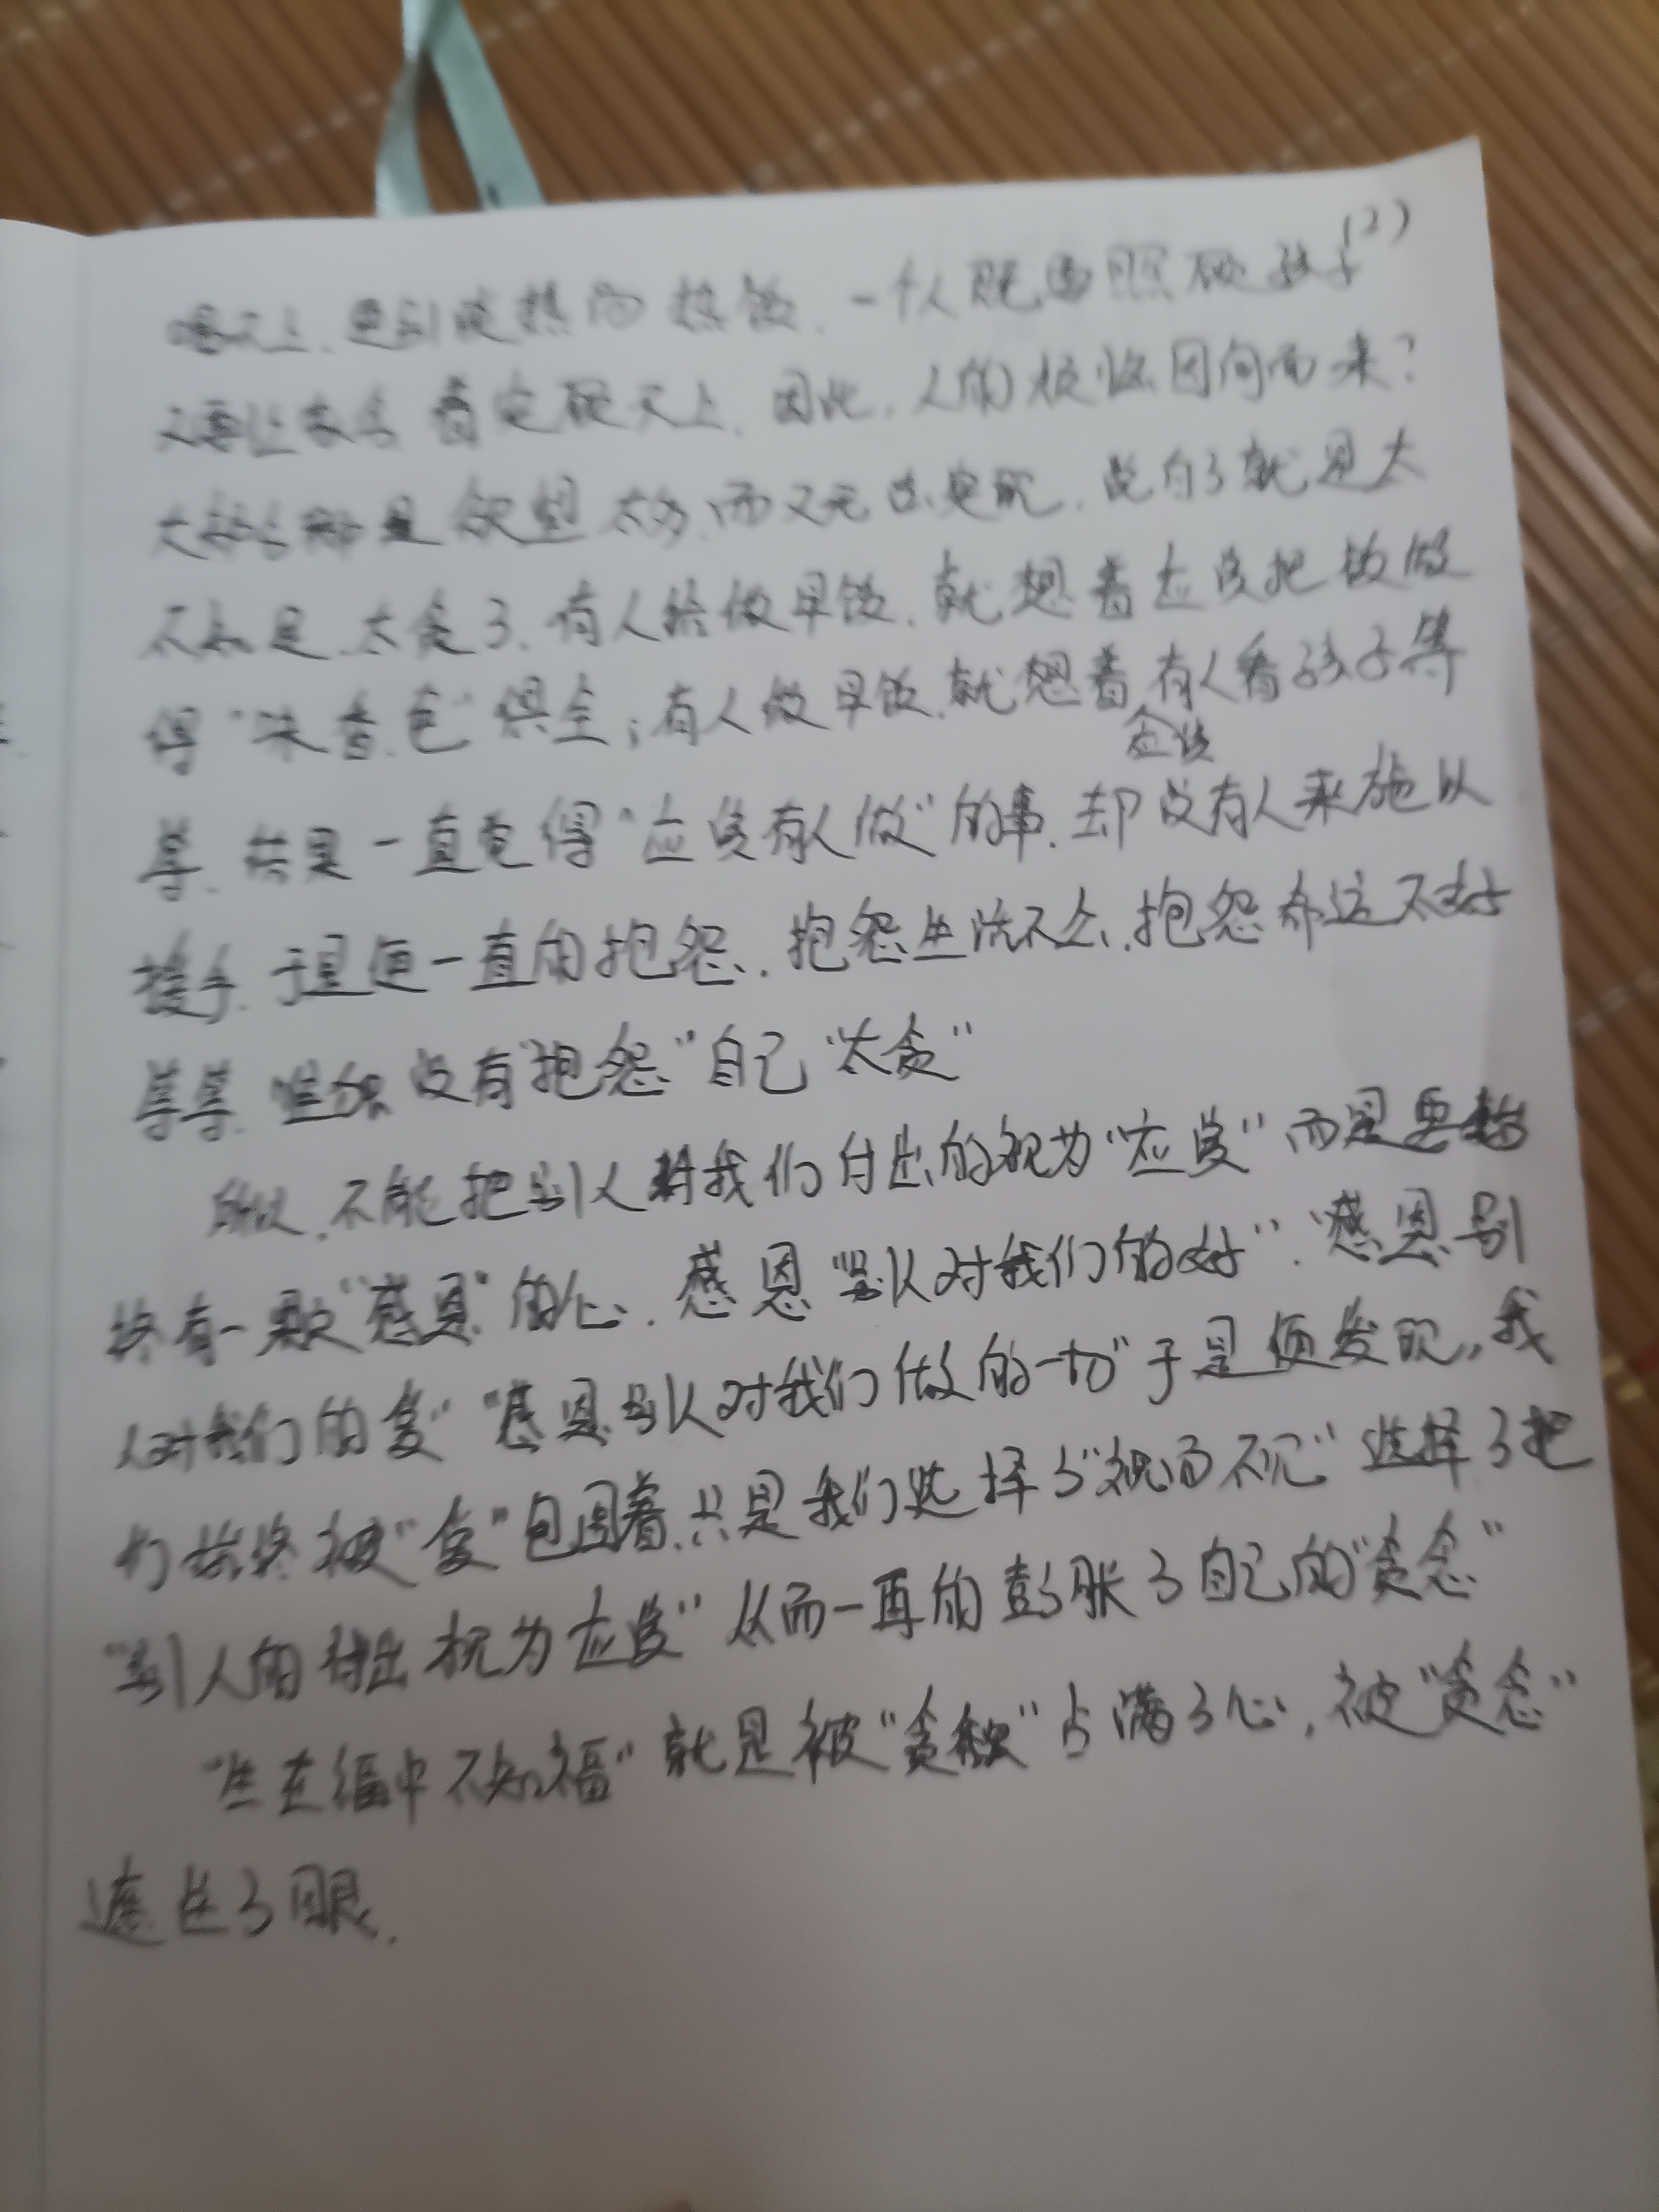 (2)
喝不上,更别说热的热饭,一个人既要照顾孩子
又要让家务看家顾不上,因此,人的烦恼因何而来?
大都是欲望太多,而又无法实现,说白了就是太
不知足,太贪了,有人给做早饭,就想着应该把饭做
得“味香色”俱全;有人做早饭,就想着有人看孩子等
应该
等,结果一直觉得“应该有人做”的事,却没有人来施以
援手,于是便一直的抱怨,抱怨生活不公,抱怨命运不好
等等,唯独没有“抱怨”自己“太贪”
所以,不能把别人对我们付出的视为“应该”而是要始
终有一颗“感恩”的心,感恩“别人对我们的好”,“感恩别
人对我们的爱”“感恩别人对我们做的一切”于是便发现,我
们始终被“爱”包围着,只是我们选择了“视而不见”选择了把
“别人的付出视为应该”从而一再的彭胀了自己的“贪念”
“生在福中不知福”就是被“贪”占满了心,被“贪念”
遮住了眼.